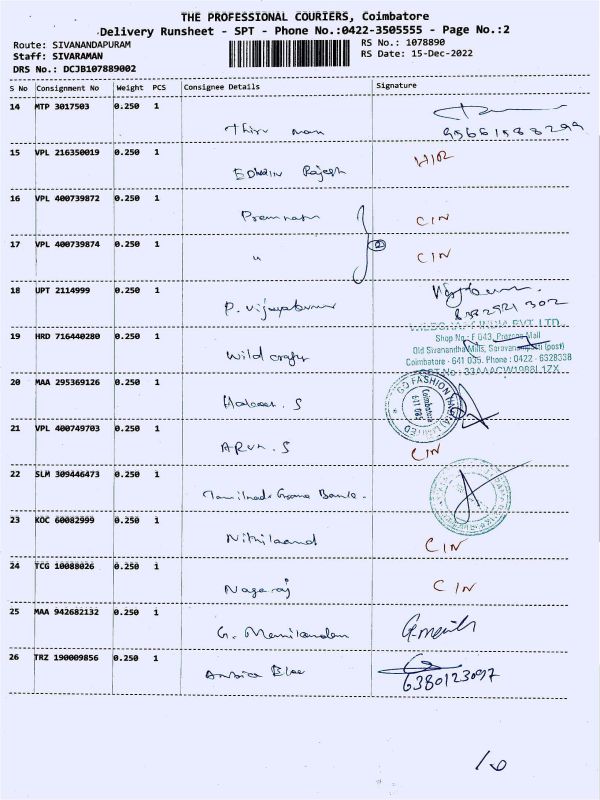 THE PROFESSIONAL COURIERS, Coimbatore
Delivery Runsheet - SPT - Phone No.:0422-3505555 - Page No.:2
Route: SIVANANDAPURAM
RS No.: 1078890
Staff: SIVARAMAN
RS Date: 15-Dec-2022
DRS No.: DCJB107889002
S No Consignment No Weight PCS Consignee Details Signature
14 MTP 3017503 0.250 1
Thiru
15 VPL 216350019 0.250 1
Edwin Rajesh
16 VPL 400739872 0.250 1
Premnath CIN
17 VPL 400739874 0.250 1
" CIN
2
18 UPT 2114999 0.250 1
P. Vijayakumar
8
19 HRD 716440280 0.250 1
Wild crafts
Shop No : F G43, Prozone Mall
Old Sivanandha Mills, Saravanampatti (post)
Coimbatore - 641 035. Phone : 0422 - 6328338
20 MAA 295369126 0.250 1
GO FASHION (INDIA) LIMITED
Coimbatore
S
21 VPL 400749703 0.250 1
ARUN. S CIN
22 SLM 309446473 0.250 1
Tamilnadu Grama Bank.
23 KOC 60082999 0.250 1
CIN
24 TCG 10088026 0.250 1
Nagaraj CIN
25 MAA 942682132 0.250 1
G. Manikandan
26 TRZ 190009856 0.250 1
6380123097